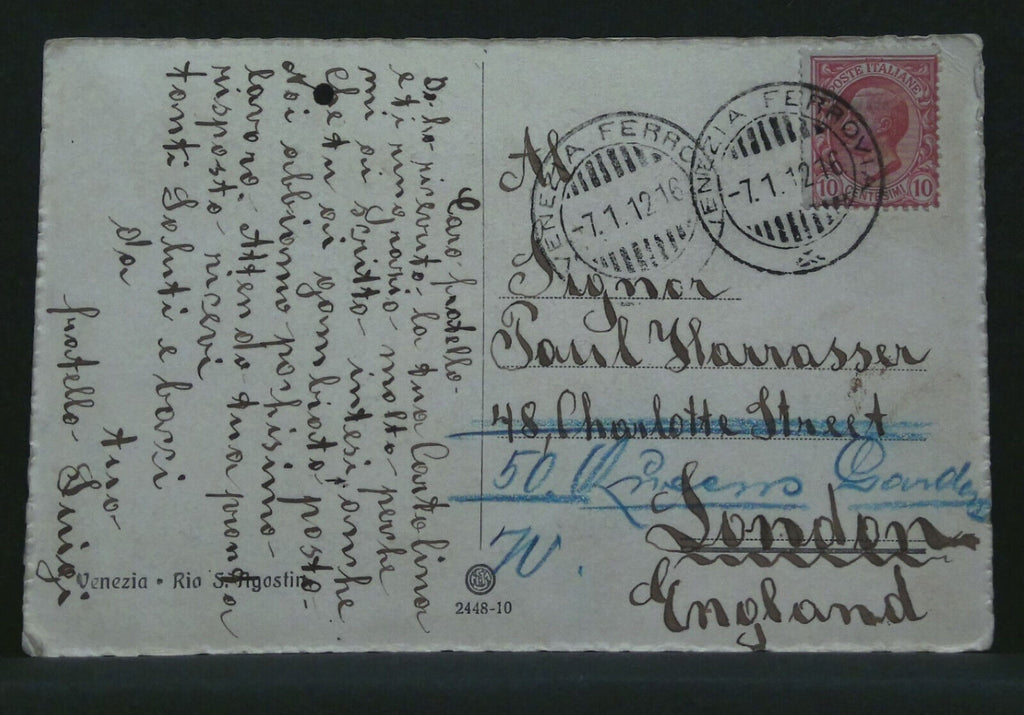 Caro fratello-
Do ho ricevuto- la tua Cartolina
e ti ringrazio- molto perche
mi ai Scritto- intesi anche
Che tu ai gambiato posto-
Noi abbiamo pochissimo-
lavoro. Attendo tua pronta
risposta- ricevi
tanti Saluti e baci
da
tuo-
fratello- Luigi
Venezia • Rio S. Agostin
2448-10
Al
Signor
Paul Harrasser
48, Charlotte Street
50. Queens Garden
W.
London
England
VENEZIA FERRO
-7.1.12 16
VENEZIA FERROVIA
-7.1.12 16
POSTE ITALIANE
10 CENTESIMI 10